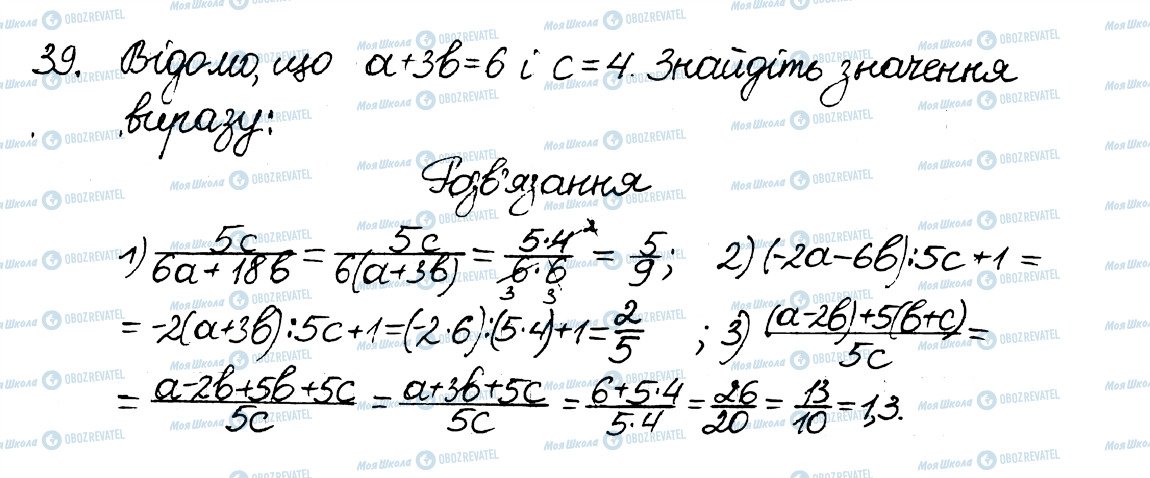 39. Відомо, що a+3b=6 і c=4. Знайдіть значення
виразу:
Розв'язання
1) 5c/(6a+18b) = 5c/(6(a+3b)) = 5·4/(6·6) = 5/9; 2) (-2a-6b):5c+1 =
= -2(a+3b):5c+1=(-2·6):(5·4)+1=2/5 ; 3) ((a-2b)+5(b+c))/5c =
= (a-2b+5b+5c)/5c = (a+3b+5c)/5c = (6+5·4)/(5·4) = 26/20 = 13/10 = 1,3.